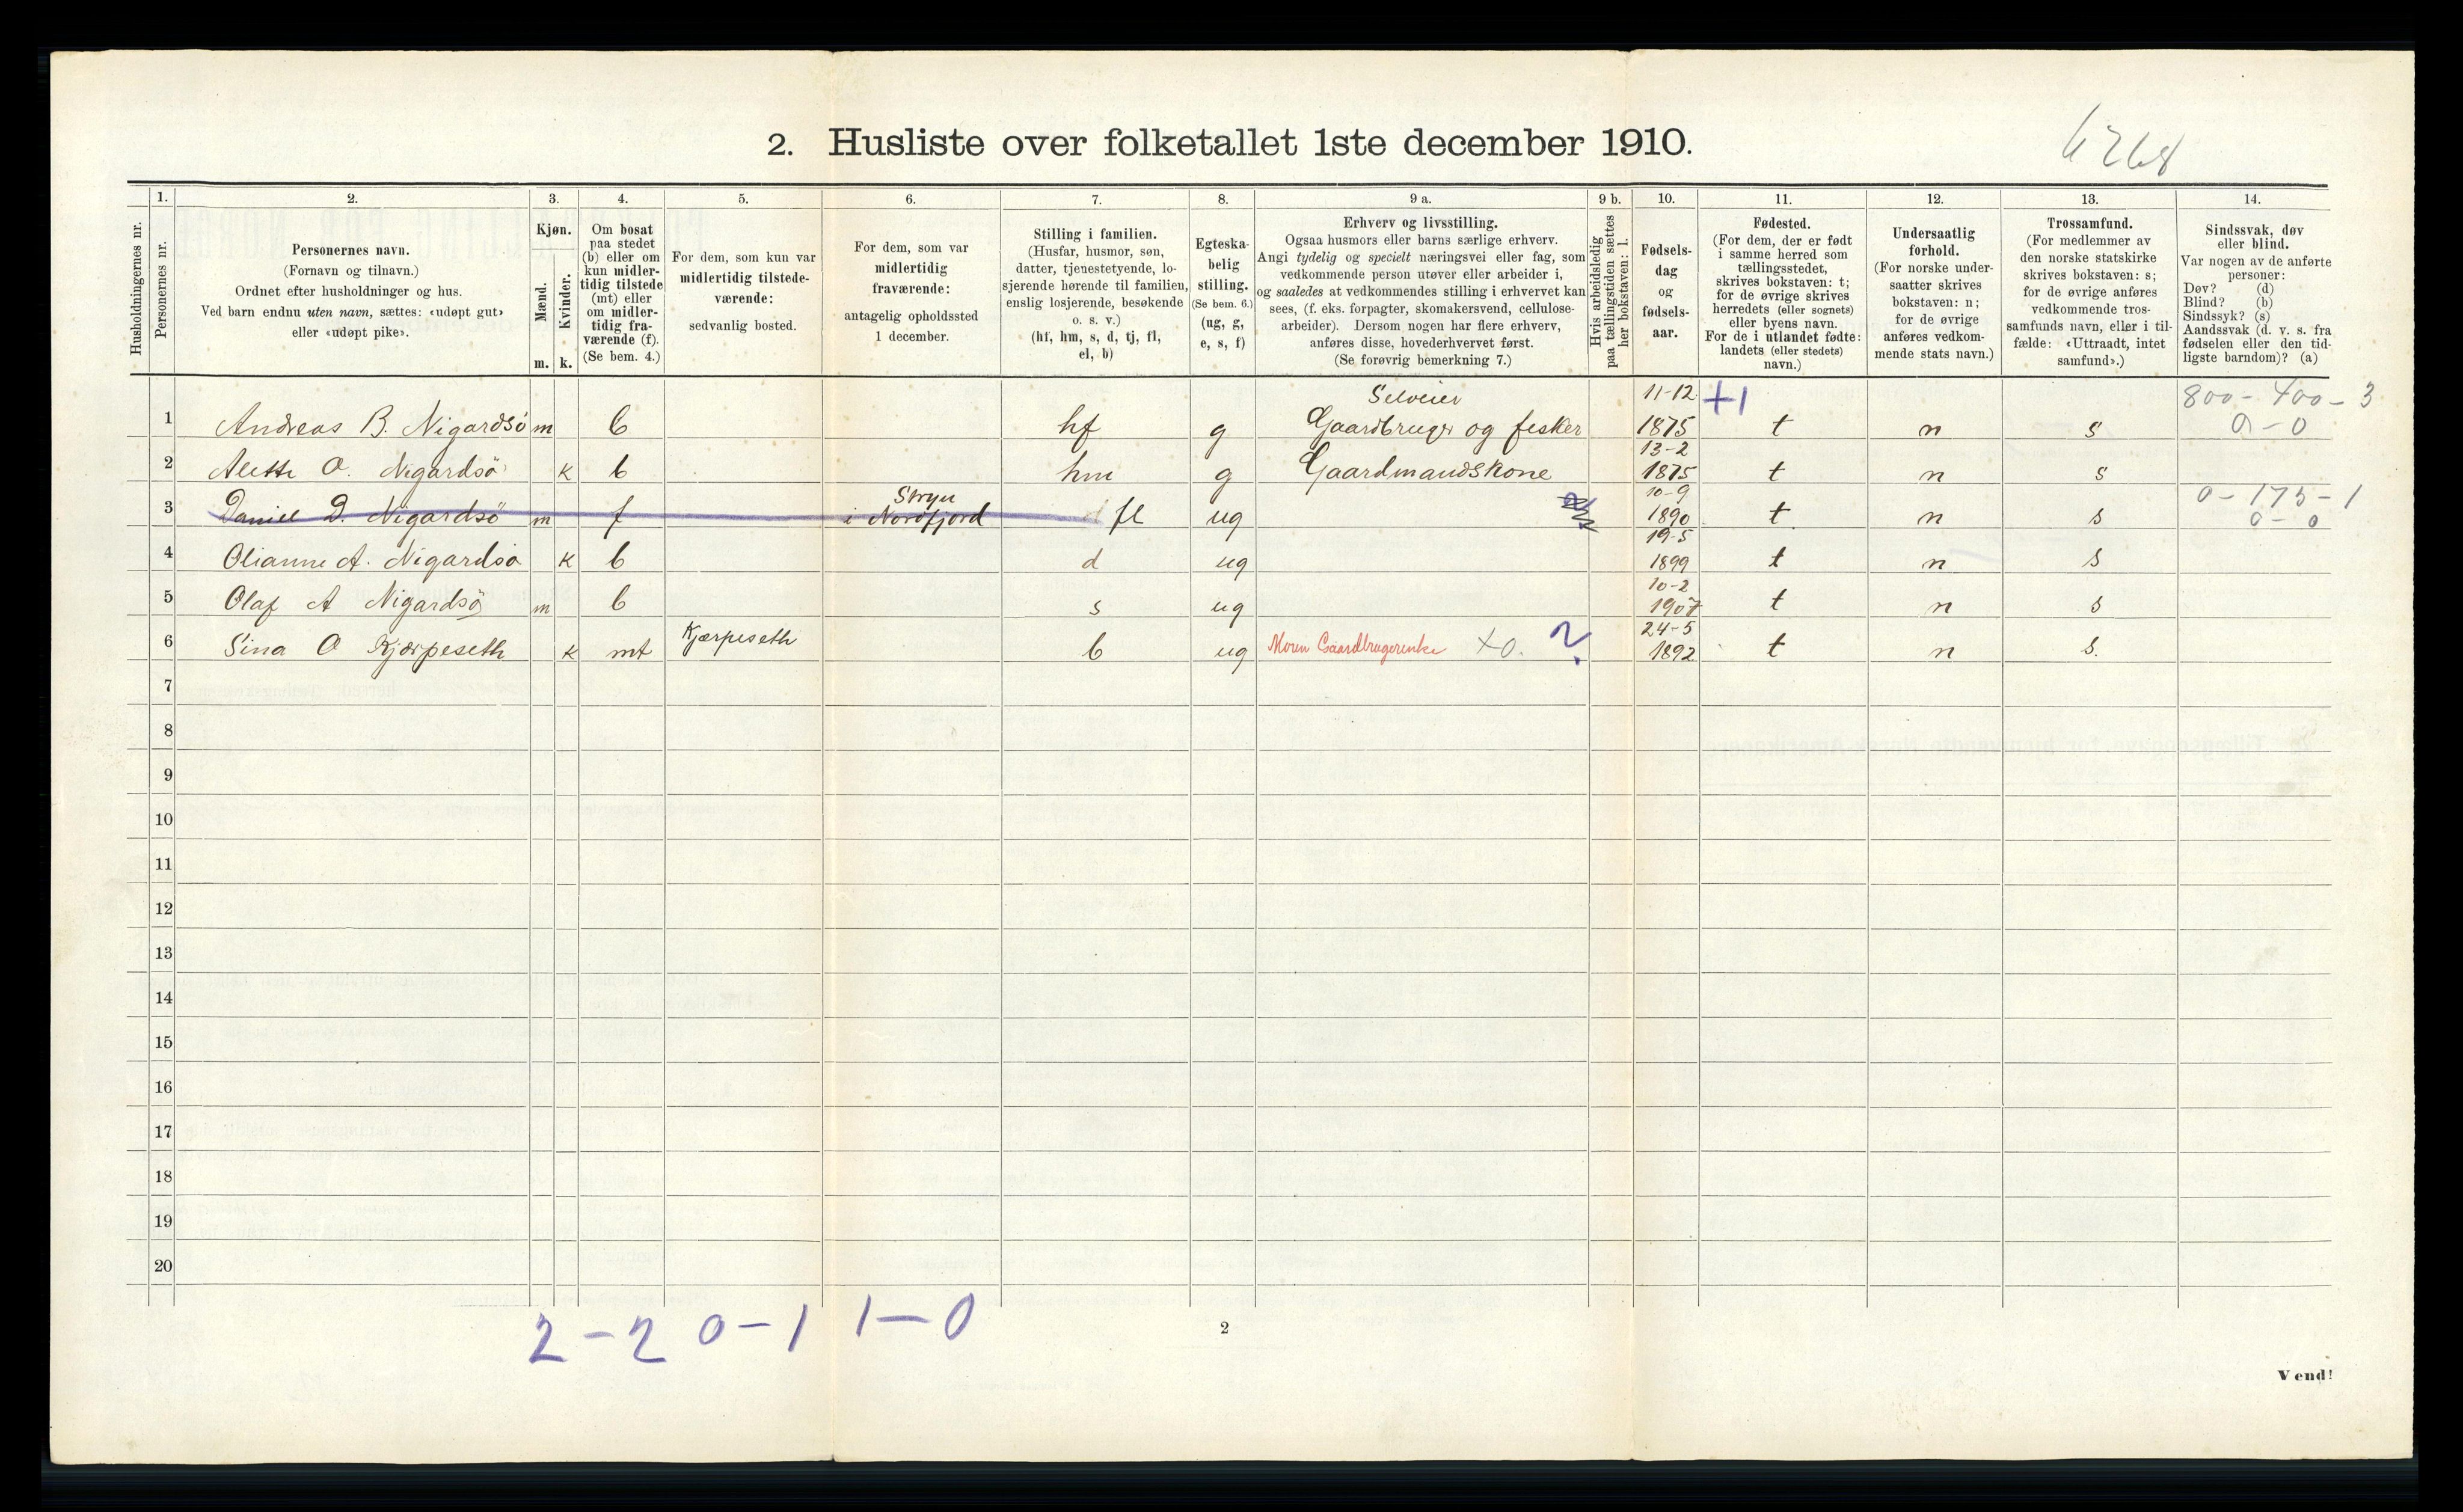 2. Husliste over folketallet 1ste december 1910.
6268
1. 2. 3. 4. 5. 6. 7. 8. 9 a. 9 b. 10. 11. 12. 13. 14.
Husholdningernes nr.
Personernes nr.
Personernes navn.
(Fornavn og tilnavn.)
Ordnet efter husholdninger og hus.
Ved barn endnu uten navn, sættes: «udøpt gut»
eller «udøpt pike».
Kjøn.
Mænd.
Kvinder.
m. k.
Om bosat
paa stedet
(b) eller om
kun midler-
tidig tilstede
(mt) eller
om midler-
tidig fra-
værende (f).
(Se bem. 4.)
For dem, som kun var
midlertidig tilstede-
værende:
sedvanlig bosted.
For dem, som var
midlertidig
fraværende:
antagelig opholdssted
1 december.
Stilling i familien.
(Husfar, husmor, søn,
datter, tjenestetyende, lo-
sjerende hørende til familien,
enslig losjerende, besøkende
o. s. v.)
(hf, hm, s, d, tj, fl,
el, b)
Egteska-
belig
stilling.
(Se bem. 6.)
(ug, g,
e, s, f)
Erhverv og livsstilling.
Ogsaa husmors eller barns særlige erhverv.
Angi tydelig og specielt næringsvei eller fag, som
vedkommende person utøver eller arbeider i,
og saaledes at vedkommendes stilling i erhvervet kan
sees, (f. eks. forpagter, skomakersvend, cellulose-
arbeider). Dersom nogen har flere erhverv,
anføres disse, hovederhvervet først.
(Se forøvrig bemerkning 7.)
Hvis arbeidsledig
paa tællingstiden sættes
her bokstaven: l.
Fødsels-
dag
og
fødsels-
aar.
Fødested.
(For dem, der er født
i samme herred som
tællingsstedet,
skrives bokstaven: t;
for de øvrige skrives
herredets (eller sognets)
eller byens navn.
For de i utlandet fødte:
landets (eller stedets)
navn.)
Undersaatlig
forhold.
(For norske under-
saatter skrives
bokstaven: n;
for de øvrige
anføres vedkom-
mende stats navn.)
Trossamfund.
(For medlemmer av
den norske statskirke
skrives bokstaven: s;
for de øvrige anføres
vedkommende tros-
samfunds navn, eller i til-
fælde: «Uttraadt, intet
samfund».)
Sindssvak, døv
eller blind.
Var nogen av de anførte
personer:
Døv? (d)
Blind? (b)
Sindssyk? (s)
Aandssvak (d. v. s. fra
fødselen eller den tid-
ligste barndom)? (a)
Selveier 11-12 +1 800 - 400 - 3
1 Andreas B. Nigardsö m b hf g Gaardbruger og fisker 1875 t n s 0 - 0
13-2
2 Alette O. Nigardsö k b hm g Gaardmandskone 1875 t n s
Stryn 10-9 0 - 175 - 1
3 Daniel D. Nigardsö m f i Nordfjord fl ug 1890 t n s 0 - 0
19-5
4 Olianne A. Nigardsö k b d ug 1899 t n s
10-2
5 Olaf A Nigardsö m b s ug 1907 t n s
Kjørpeseth 24-5
6 Sina O Kjørpeseth k mt b ug Moren Gaardbrugerenke +0. ? 1892 t n s.
7
8
9
10
11
12
13
14
15
16
17
18
19
20
2 - 2 0 - 1 1 - 0
2
Vend!